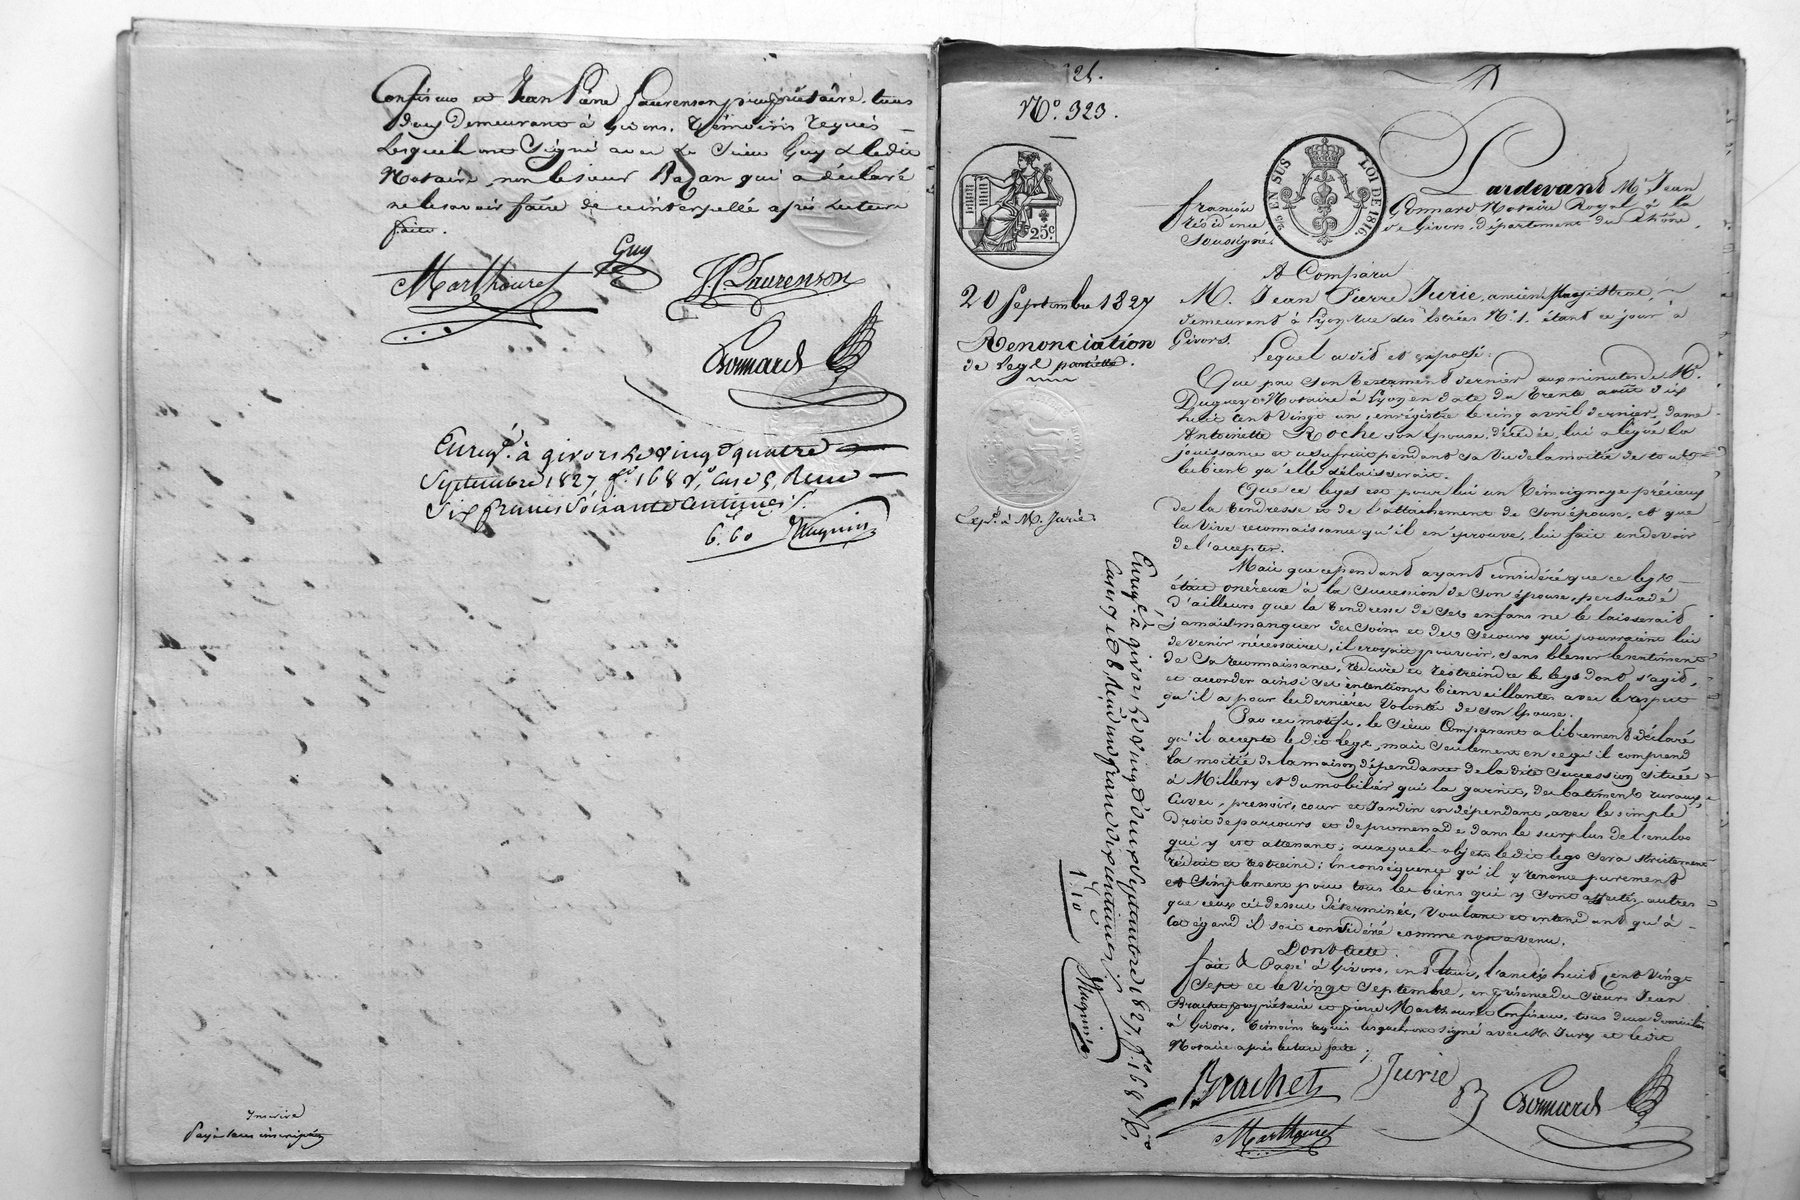 Confiseur et Jean Pierre Laurenson propriétaire, tous
deux demeurant à Givors, Témoins requis
Lesquels ont Signé avec le Sieur Guy & ledit
Notaire, non le sieur Bazan qui a déclaré
ne le savoir faire de ce interpellé après lecture
faite.
Guy
Marthouret
J. P. Laurenson
Gonnard
Enregé. à givors le vingt quatre
Septembre 1827 fo. 168 Vo. Case 5, Reçu
Six francs Soixante Centimes
6.60
Magnin
Inscrire
21.
No. 323.
25c.
20 Septembre 1827
Renonciation
de legs partielle.
Exp.é à M. Jurie
Enregé. à givors le vingt deux Septembre 1827, fo. 168 Vo.
Case 7 et 8 Reçu un franc dix centimes
1.10
Magnin
2/5 EN SUS
LOI DE 1816.
Pardevant Me. Jean
françois Gonnard Notaire Royal à la
résidence de Givors, département du Rhône,
Soussigné
A Comparu
M. Jean Pierre Jurie, ancien Magistrat,
demeurant à Lyon rue des Estrées No. 1. étant ce jour à
Givors.
Lequel a dit et exposé:
Que par son testament dernier aux minutes de Me.
Duguey Notaire à Lyon en date du trente août dix
huit cent vingt un, enregistré le cinq avril dernier, dame
Antoinette Roche son épouse, décédée, lui a légué la
jouissance et usufruit pendant sa vie de la moitié de tous
les biens qu'elle délaisserait.
Que ce legs est pour lui un témoignage précieux
de la tendresse et de l'attachement de son épouse, et que
la vive reconnaissance qu'il en éprouve, lui fait un devoir
de l'accepter.
Mais que cependant ayant considéré que ce legs
était onéreux à la succession de son épouse, persuadé
d'ailleurs que la tendresse de ses enfans ne le laisserait
jamais manquer des soins et des secours qui pourraient lui
devenir nécessaires, il croyait pouvoir, sans blesser le sentiment
de sa reconnaissance, réduire et restreindre le legs dont s'agit,
et accorder ainsi ses intentions bienveillantes avec le respect
qu'il a pour les dernières volontés de son épouse.
Par ces motifs, le sieur Comparant a librement déclaré
qu'il accepte le dit legs, mais seulement en ce qu'il comprend
la moitié de la maison dépendant de la dite succession située
à Millery et du mobilier qui la garnit, des batiments ruraux,
Cuves, pressoir, cour et Jardin en dépendant, avec le simple
Droit de parcours et de promenade dans le surplus de l'enclos
qui y est attenant; auxquels objets le dit legs sera strictement
réduit et restreint; En conséquence qu'il y renonce purement
et Simplement pour tous les biens qui y sont affectés, autres
que ceux ci dessus déterminés, voulant et entendant qu'à
cet égard il soit considéré comme non avenu.
Dont Acte.
fait & Passé à Givors, en l'Etude, l'an dix huit cent vingt
Sept et le vingt Septembre, en présence des Sieurs Jean
Brachet propriétaire et pierre Marthouret Confiseur, tous deux domiciliés
à Givors, Témoins requis lesquels ont signé avec M. Jury et ledit
Notaire après lecture faite
Brachet
Jurie
Gonnard
Marthouret